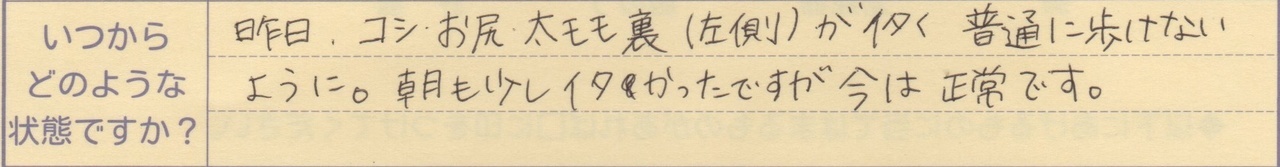 いつから
どのような
状態ですか？
昨日、コシ・お尻・太モモ裏（左側）がイタく 普通に歩けない
ように。朝も少しイタかったですが今は 正常です。